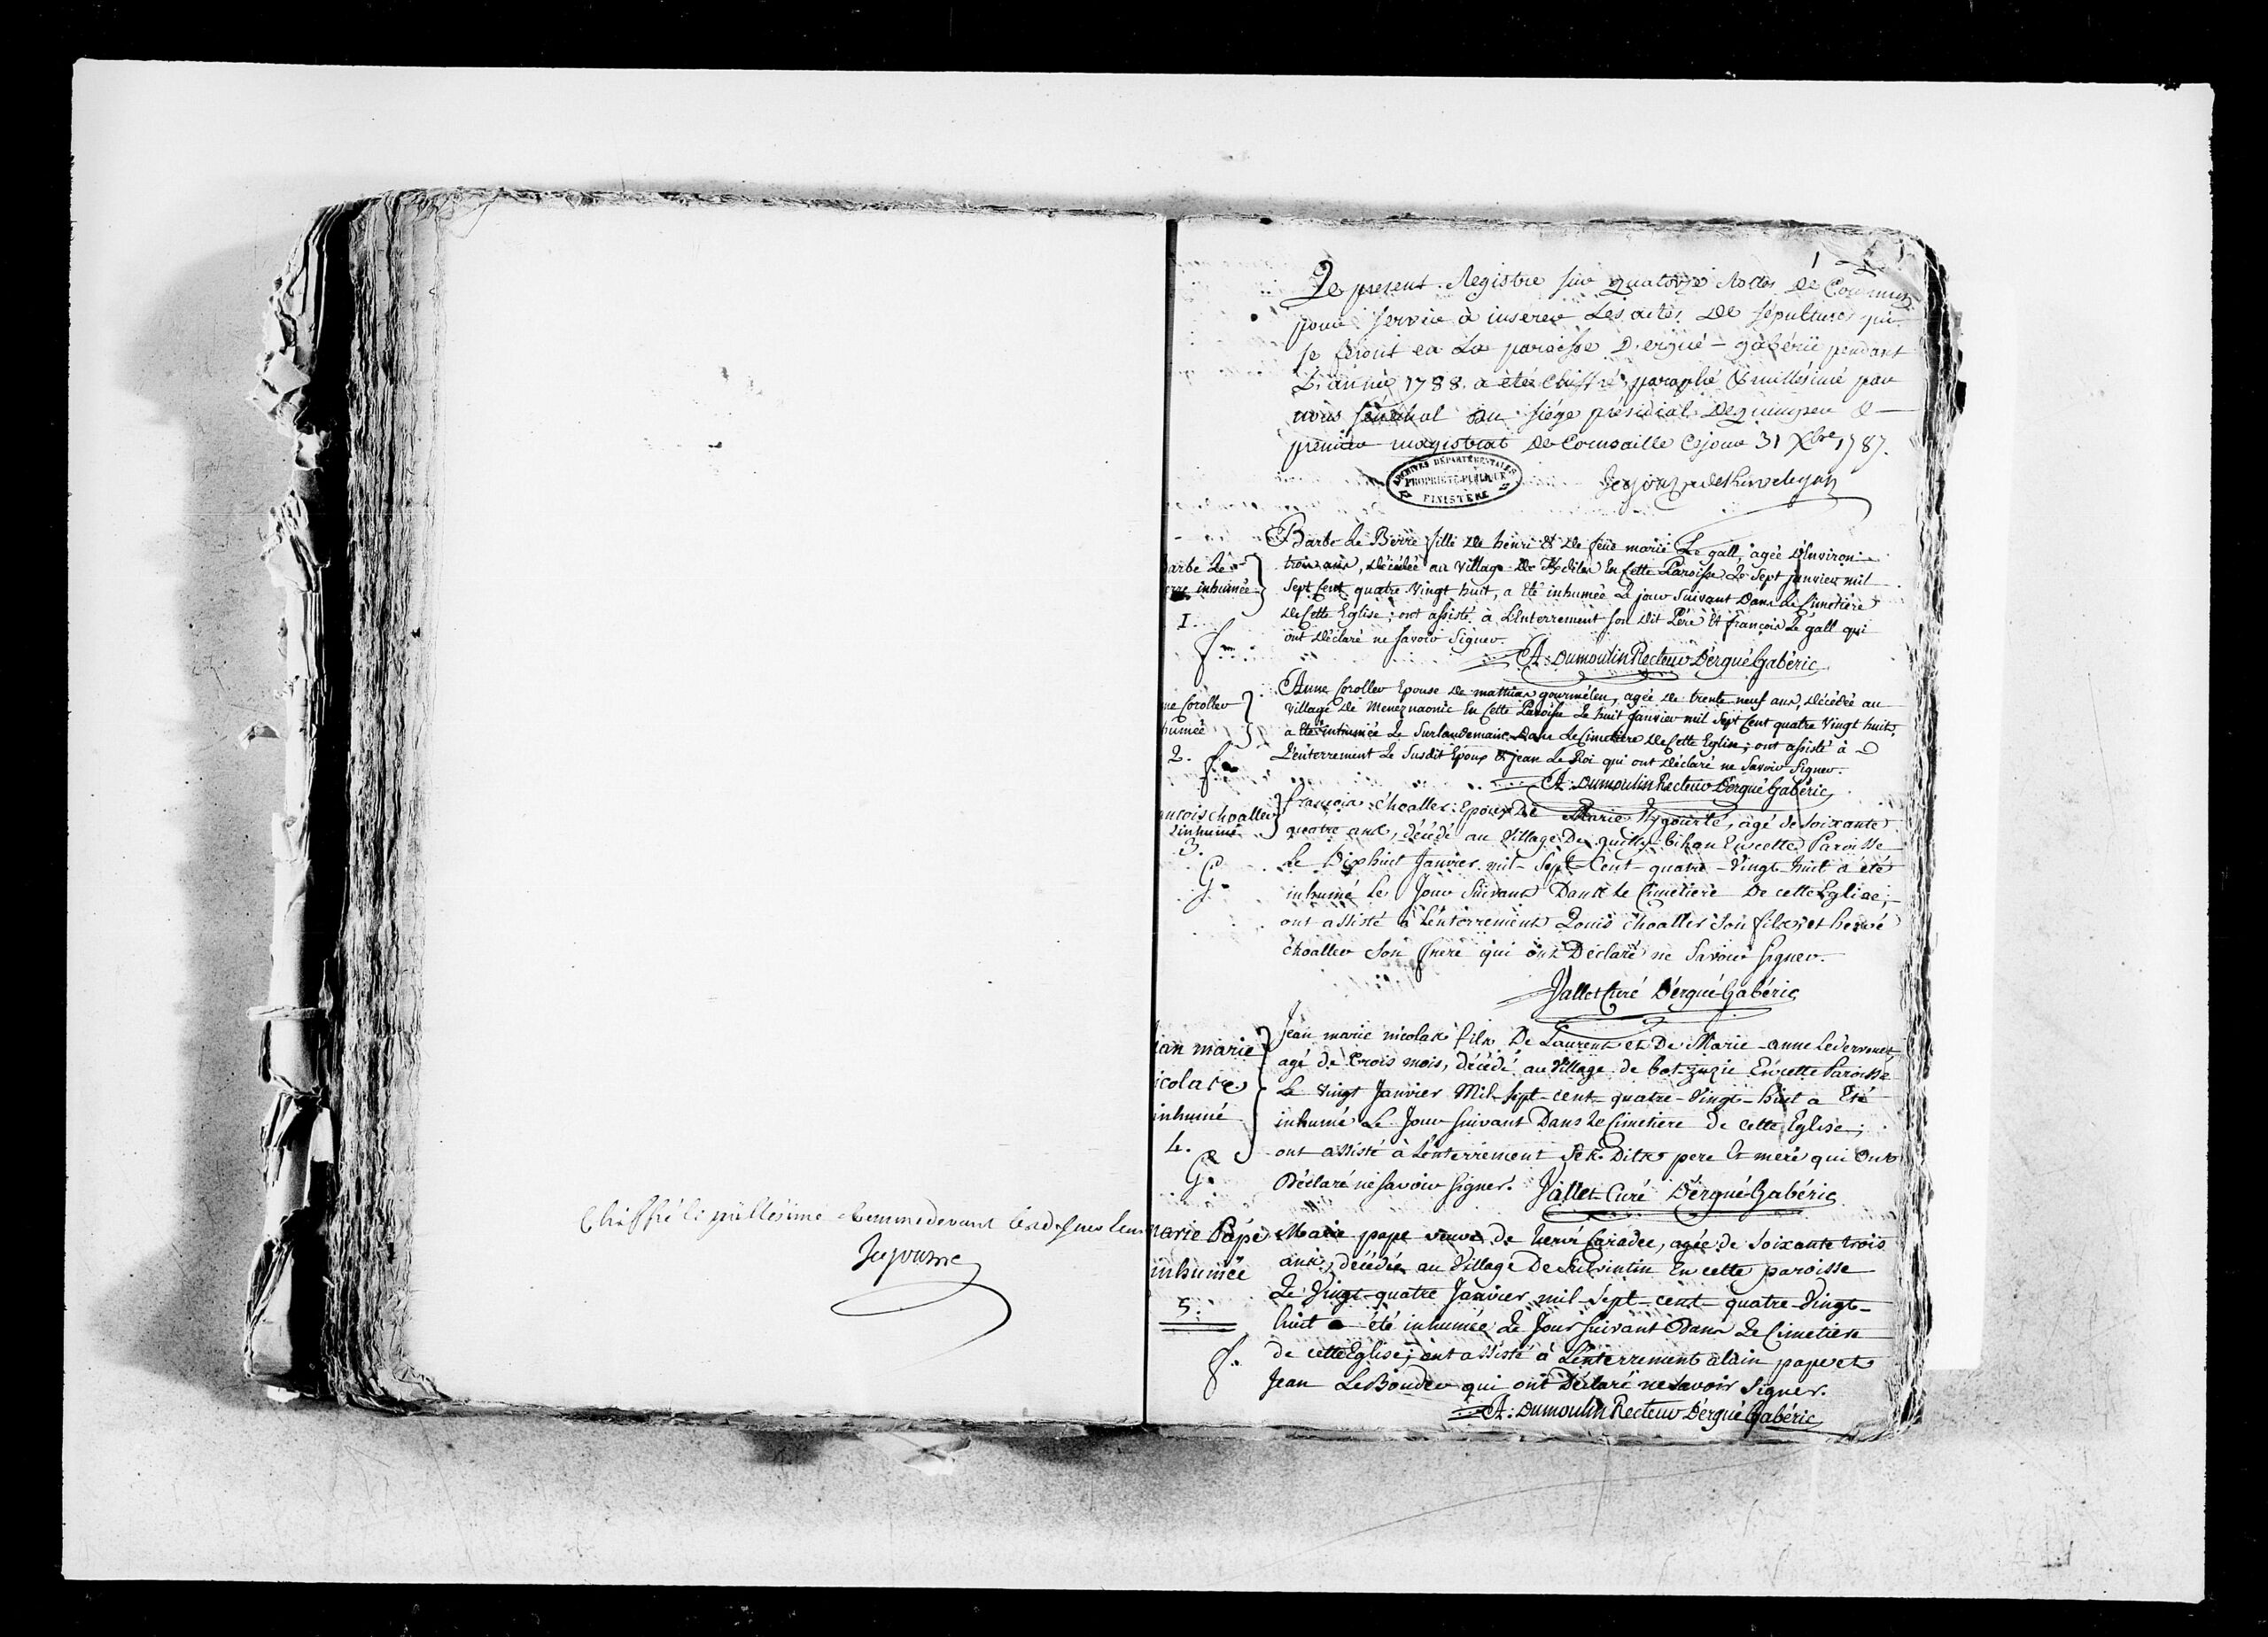 Chiffré et millésimé comme devant
Jujourne
1
Le present Registre sur quatorze Rolles de Commun
pour servir à inserer les actes de sepulture qui
se feront en la paroisse D'ergué-gabéric pendant
L'année 1788. a été chiffré, paraphé & millésimé par
nous sénéchal au siége présidial de quimper &
premier magistrat de Cornouaille ce jour 31 Xbre 1787.
ARCHIVES DÉPARTEMENTALES
PROPRIÉTÉ PUBLIQUE
FINISTÈRE
arbe Le
erre inhumée
1.
f.
Barbe Le Berre fille de henri & de feüe marie Le gall, agée d'Environ
trois ans, décédée au village de En Cette Paroisse Le Sept janvier mil
Sept Cent quatre Vingt huit, a Eté inhumée Le jour Suivant Dans Le Cimetiére
De Cette Eglise; ont assisté à L'Enterrement son dit Pére Et françois Le gall qui
ont Déclaré ne savoir Signer.
A: Dumoulin Recteur D'ergué Gabéric
ne Coroller
humée
2.
f.
Anne Coroller Epouse de mathias gourmélen, agée de trente neuf ans, décédée au
village de Meneznaonic En Cette Paroisse Le huit Janvier mil Sept Cent quatre Vingt huit,
a Eté inhumée Le Surlendemain Dans Le Cimetiére De Cette Eglise; ont assisté à
L'enterrement Le Susdit Epoux & jean Le Roi qui ont déclaré ne Savoir Signer.
A: Dumoulin Recteur D'ergué Gabéric
ancois choaller
inhumé
3.
G.
françois choaller Epoux De Marie agé de Soixante
quatre ans, décédé au Village De quilly-bihan En cette Paroisse
Le Dix huit Janvier mil-Sept-Cent-quatre-Vingt huit a été
inhumé Le Jour Suivant Dans le Cimetiere De cette Eglise;
ont assisté à L'enterrement Louis choaller Son fils, et hervé
choaller Son frere qui ont Déclaré ne Savoir Signer.
Jallet Curé D'ergué-Gabéric
ean marie
icolas
inhumé
4.
G.
Jean marie nicolas fils De Laurent et De Marie-anne
agé de trois mois, décédé au Village de En cette Paroisse
Le vingt Janvier Mil-sept-cent-quatre-Vingt-huit a Eté
inhumé Le Jour suivant Dans Le Cimetiere de cette Eglise;
ont assisté à L'enterrement Ses Dits pere et mere qui Ont
Déclaré ne savoir signer. Jallet Curé D'ergué-Gabéric
marie Pape
inhumée
5.
f.
Marie pape veuve de hervé Caradec, agée de Soixante trois
ans, décédée au Village De En cette paroisse
Le Vingt-quatre Janvier mil-Sept-cent-quatre-Vingt-
huit a été inhumée Le Jour suivant Dans Le Cimetiere
de cette Eglise; ont assisté à L'enterrement alain pape et
Jean Le Bouder qui ont Déclaré ne Savoir Signer.
A: Dumoulin Recteur D'ergué Gabéric